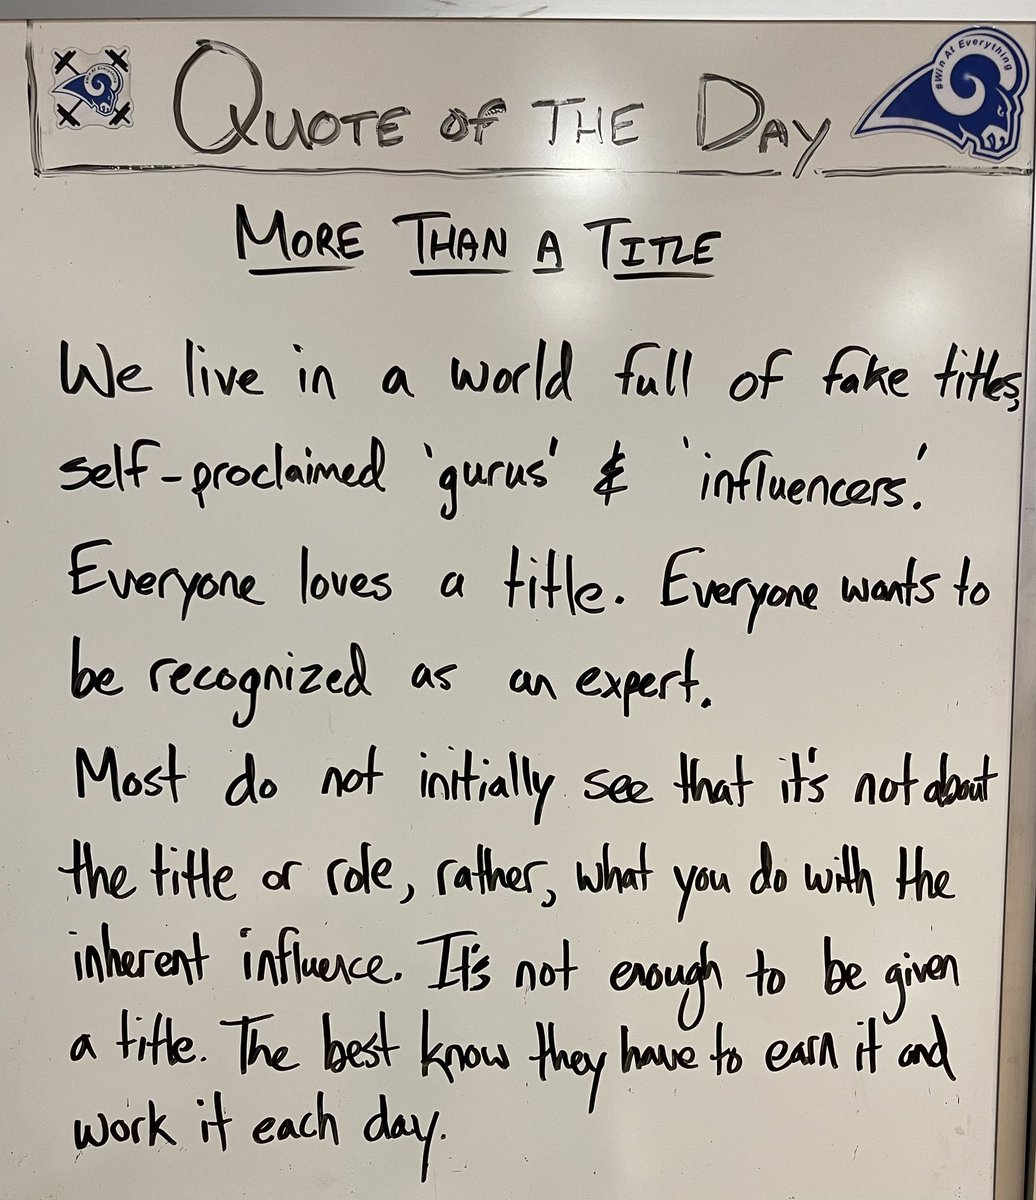 Quote of the Day
#Win At Everything
More Than a Title
We live in a world full of fake titles,
self-proclaimed 'gurus' & 'influencers.'
Everyone loves a title. Everyone wants to
be recognized as an expert.
Most do not initially see that it's not about
the title or role, rather, what you do with the
inherent influence. It's not enough to be given
a title. The best know they have to earn it and
work it each day.